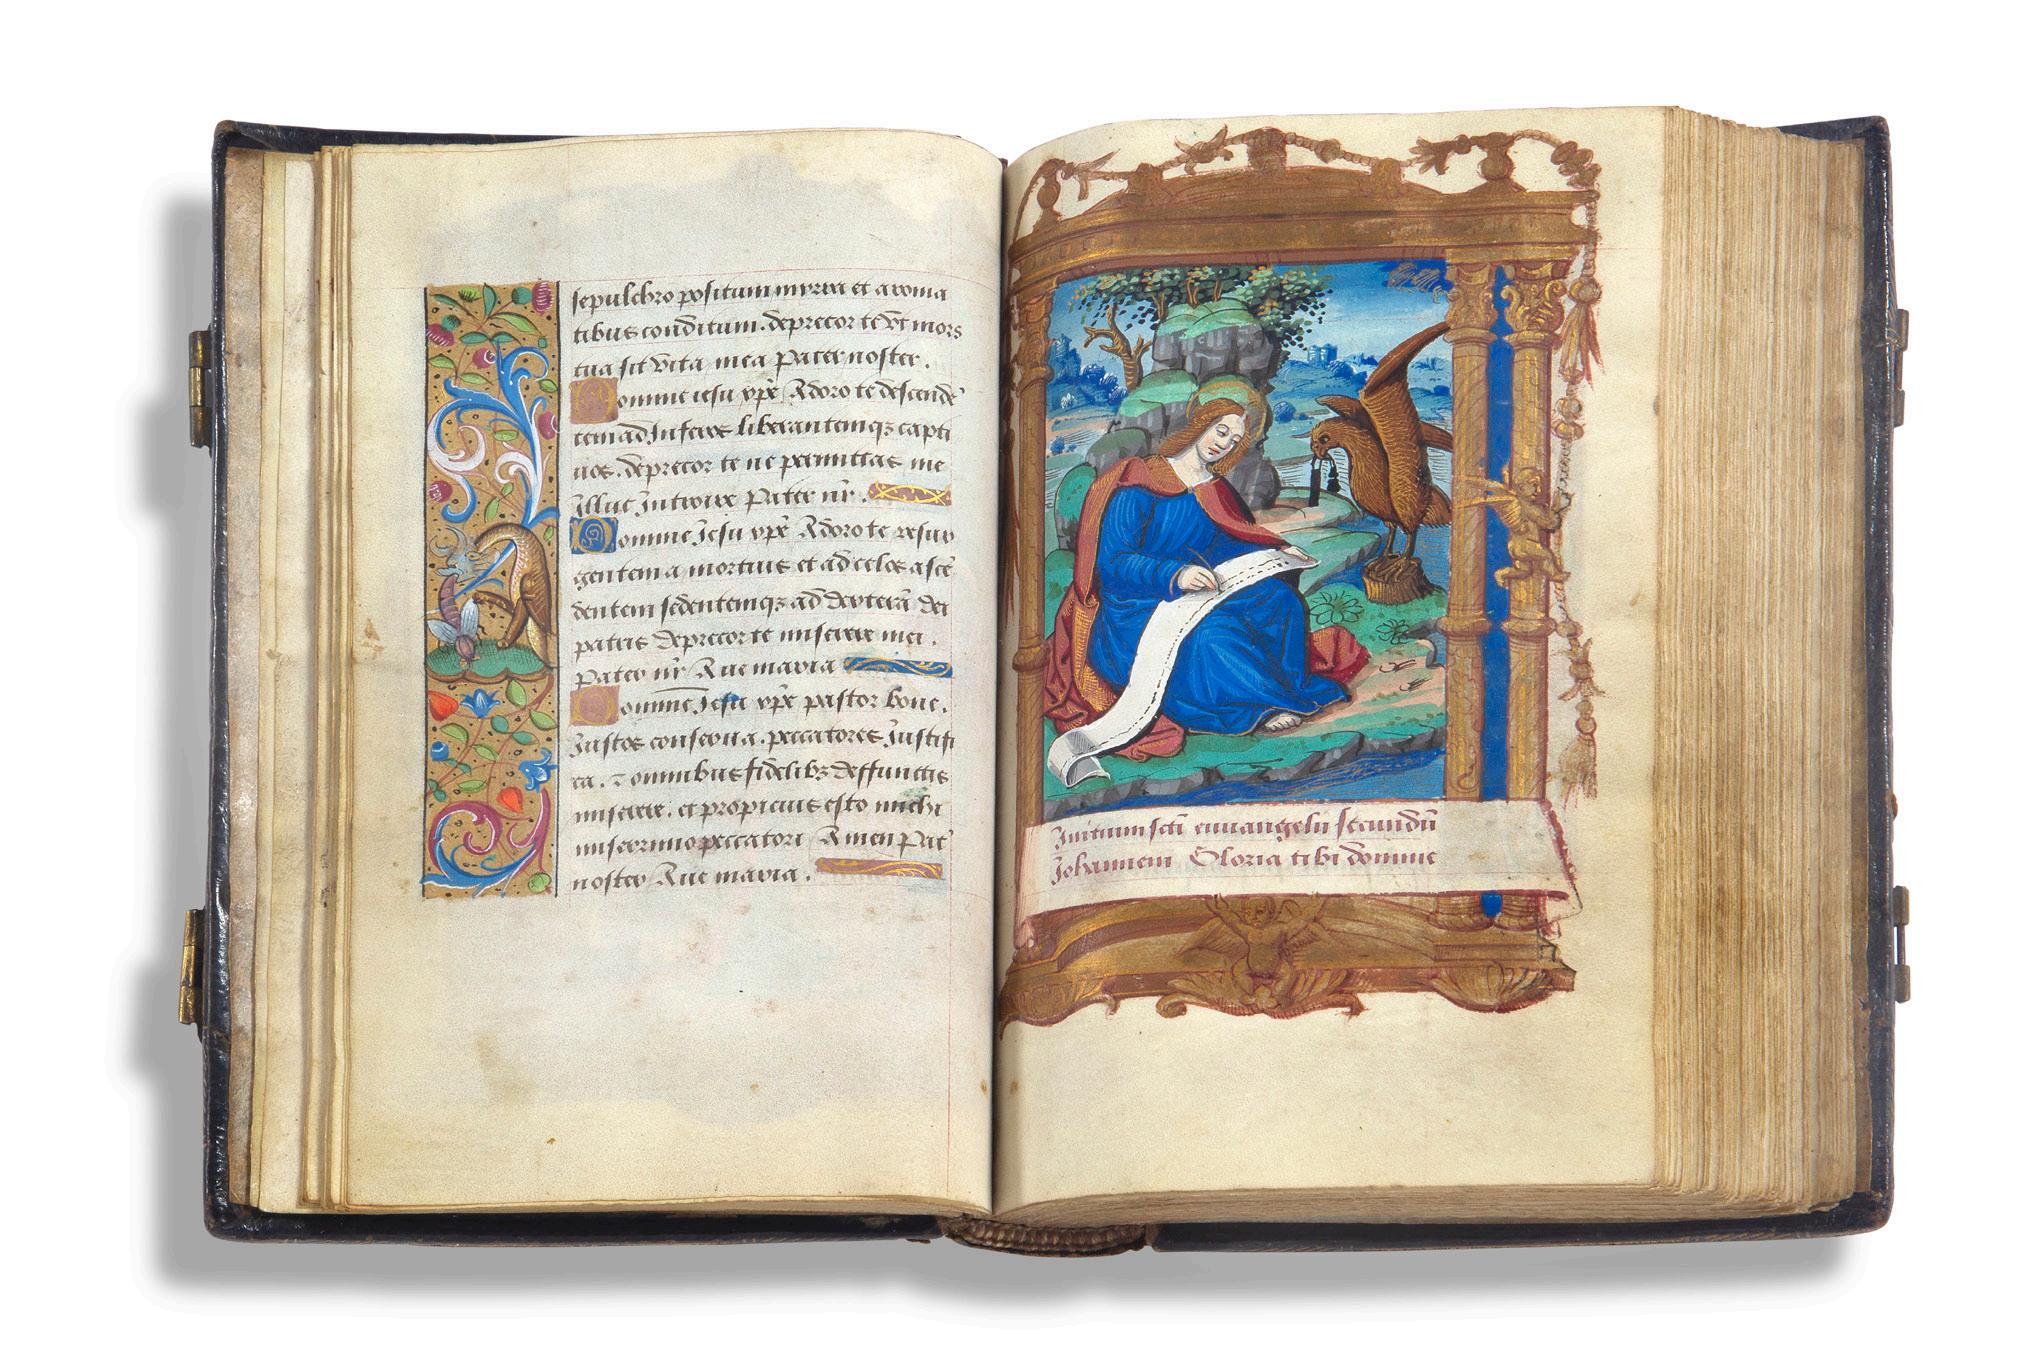 sepulchro positum myrra et aroma
tibus conditum. deprecor te vt mors
tua sit vita mea Pater noster.
Domine iesu xp̄e Adoro te descendē
tem ad Inferos liberantemqꝫ capti
uos. deprecor te ne permittas me
Illuc Introire Pater nr̄.
Domine Jesu xp̄e Adoro te resur
gentem a mortuis et ad celos ascē
dentem sedentemqꝫ ad dexterā dei
patris deprecor te miserere mei.
Pater nr̄ Aue maria
Domine Jesu xp̄e pastor bone.
Justos conserua. peccatores Justifi
ca. ⁊ omnibus fidelibꝫ deffunctis
miserere. et propicius esto michi
miserrimo peccatori Amen Pat̄
noster Aue maria.
Inicium scti euuangelii secundū
Johannem Gloria tibi domine